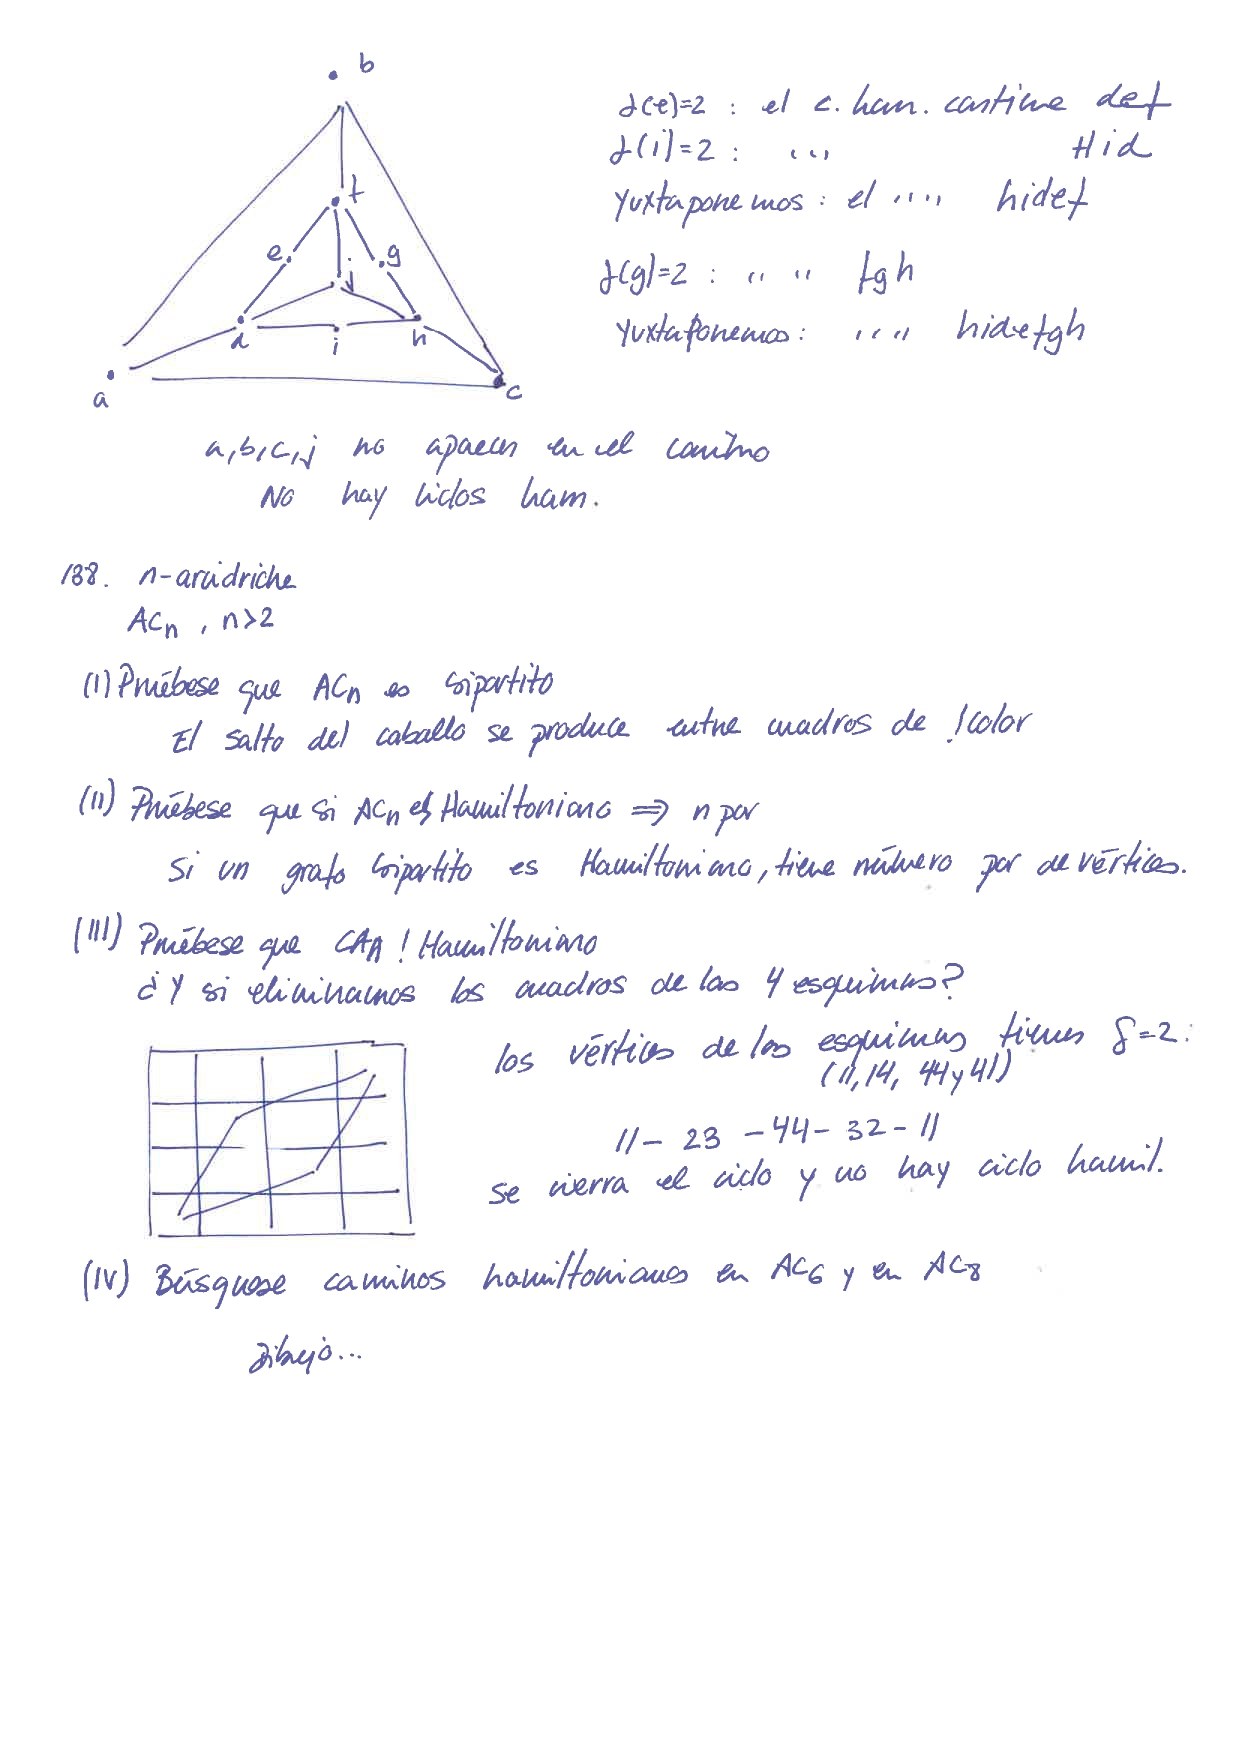 b
f
e
g
j
d
i
h
a
c
δ(e)=2 : el c. ham. contiene def
δ(i)=2 : '' '' Hid
Yuxtaponemos : el '' '' hidef
δ(g)=2 : '' '' fgh
Yuxtaponemos : '' '' hidefgh
a,b,c,j no aparecen en el camino
No hay ciclos ham.
188. n-
ACn , n>2
(I) Pruébese que ACn es bipartito
El salto del caballo se produce entre cuadros de !color
(II) Pruébese que si ACn es Hamiltoniano ⇒ n par
Si un grafo bipartito es Hamiltoniano, tiene número par de vértices.
(III) Pruébese que CA ! Hamiltoniano
¿Y si eliminamos los cuadros de las 4 esquinas?
los vértices de las esquinas tienen δ=2:
(11, 14, 44 y 41)
11 - 23 - 44 - 32 - 11
se cierra el ciclo y no hay ciclo hamil.
(IV) Búsquese caminos hamiltonianos en AC6 y en AC8
Dibujo...